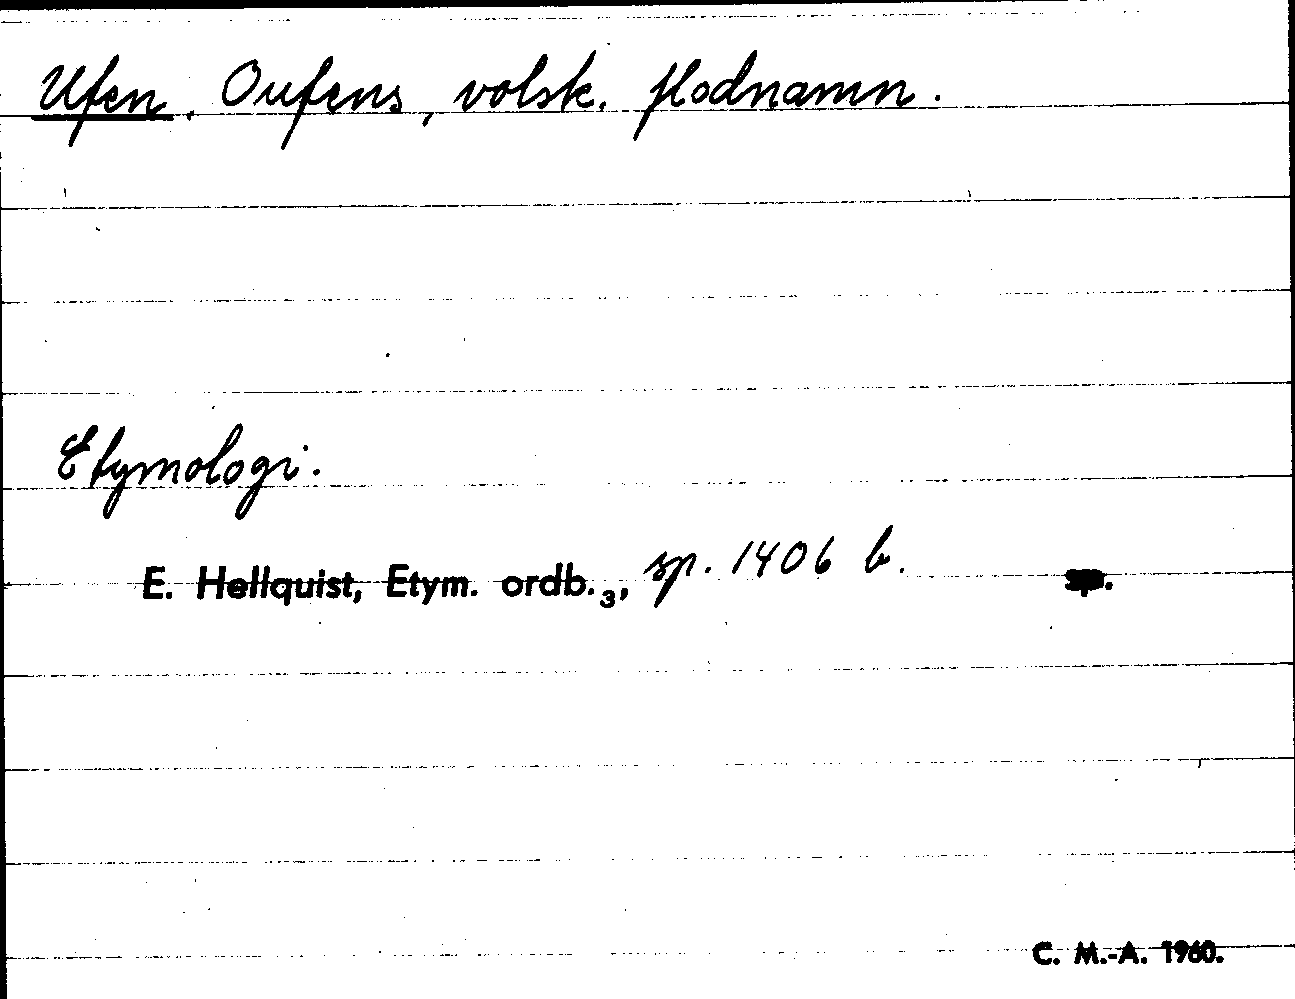 Ufen, Oufens, volsk. flodnamn.
Etymologi.
E. Hellquist, Etym. ordb.₃, sp. 1406 b. sp.
C. M.-A. 1960.